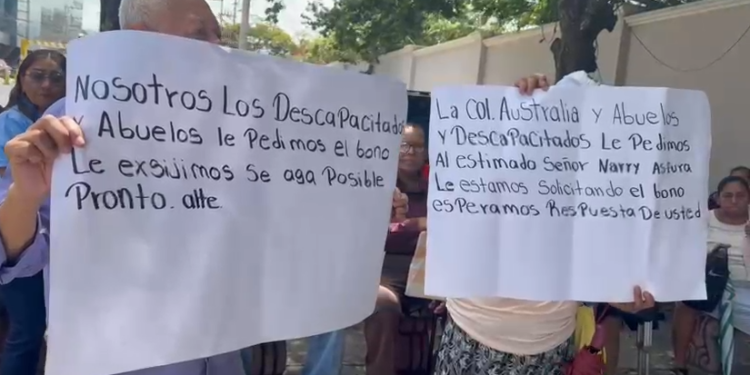 Nosotros Los Descapacitados
y Abuelos le Pedimos el bono
Le exsijimos se aga Posible
Pronto. atte.
La Col. Australia y Abuelos
y Descapacitados Le Pedimos
Al estimado Señor Narry Asfura
Le estamos Solicitando el bono
esperamos Respuesta De usted